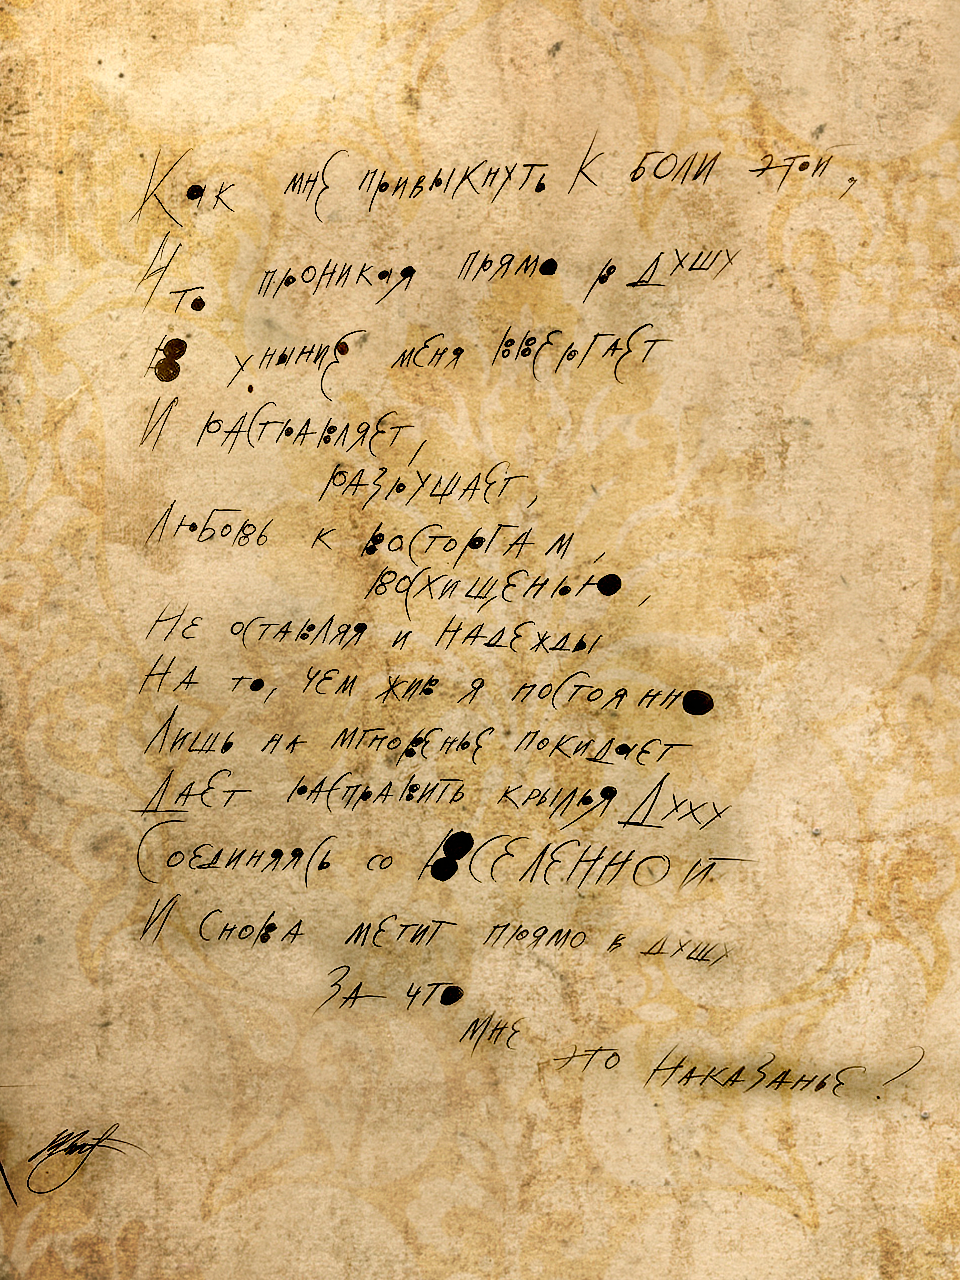 Как мне привыкнуть к боли этой,
Что проникая прямо в душу
В уныние меня ввергает
И растравляет,
разрушает,
Любовь к восторгам,
восхищенью,
Не оставляя и надежды
На то, чем жив я постоянно
Лишь на мгновенье покидает
Дает расправить крылья Духу
Соединяясь со Вселенной
И снова метит прямо в душу
За что
мне
это Наказанье?